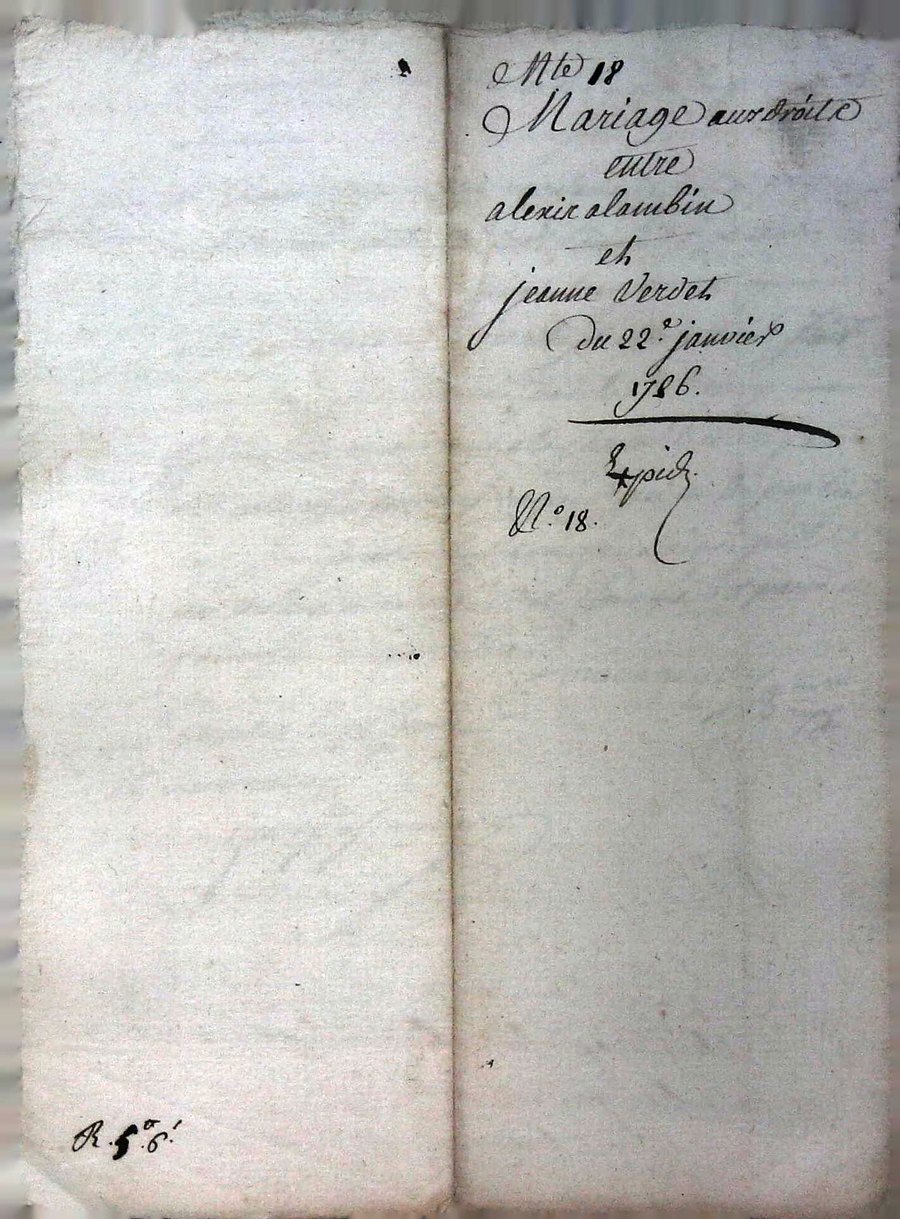 Mte 18
Mariage aux droits
entre
alexis alambin
et
jeanne Verdet
du 22.e janvier
1786.
Expid.
N.o 18.
R. 5.o 6.